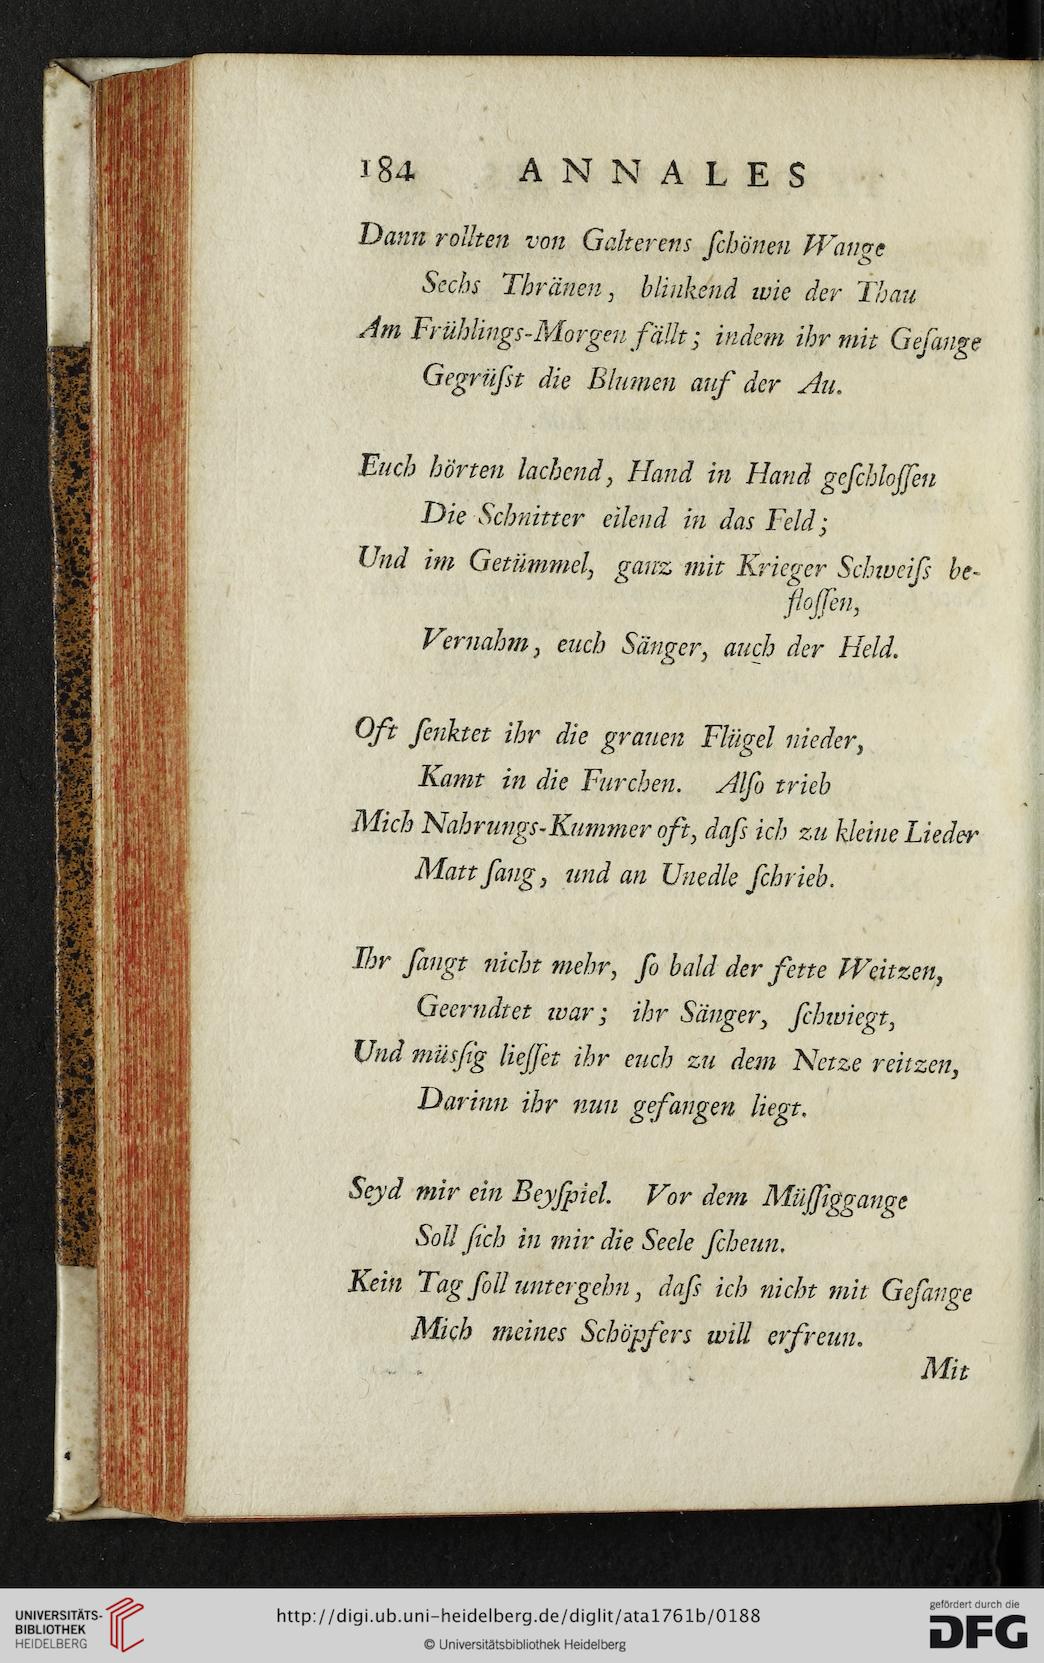 184 ANNALES
Dann rollten von Galterens ſchönen Wange
Sechs Thränen, blinkend wie der Thau
Am Frühlings-Morgen fällt; indem ihr mit Geſange
Gegrüſst die Blumen auf der Au.
Euch hörten lachend, Hand in Hand geſchloſſen
Die Schnitter eilend in das Feld;
Und im Getümmel, ganz mit Krieger Schweiſs be-
floſſen,
Vernahm, euch Sänger, auch der Held.
Oft ſenktet ihr die grauen Flügel nieder,
Kamt in die Furchen. Alſo trieb
Mich Nahrungs-Kummer oft, daſs ich zu kleine Lieder
Matt ſang, und an Unedle ſchrieb.
Ihr ſangt nicht mehr, ſo bald der fette Weitzen,
Geerndtet war; ihr Sänger, ſchwiegt,
Und müsſig lieſſet ihr euch zu dem Netze reitzen,
Darinn ihr nun gefangen liegt.
Seyd mir ein Beyſpiel. Vor dem Müſſiggange
Soll ſich in mir die Seele ſcheun.
Kein Tag ſoll untergehn, daſs ich nicht mit Geſange
Mich meines Schöpfers will erfreun.
Mit
UNIVERSITÄTS-
BIBLIOTHEK
HEIDELBERG
http://digi.ub.uni-heidelberg.de/diglit/ata1761b/0188
© Universitätsbibliothek Heidelberg
gefördert durch die
DFG